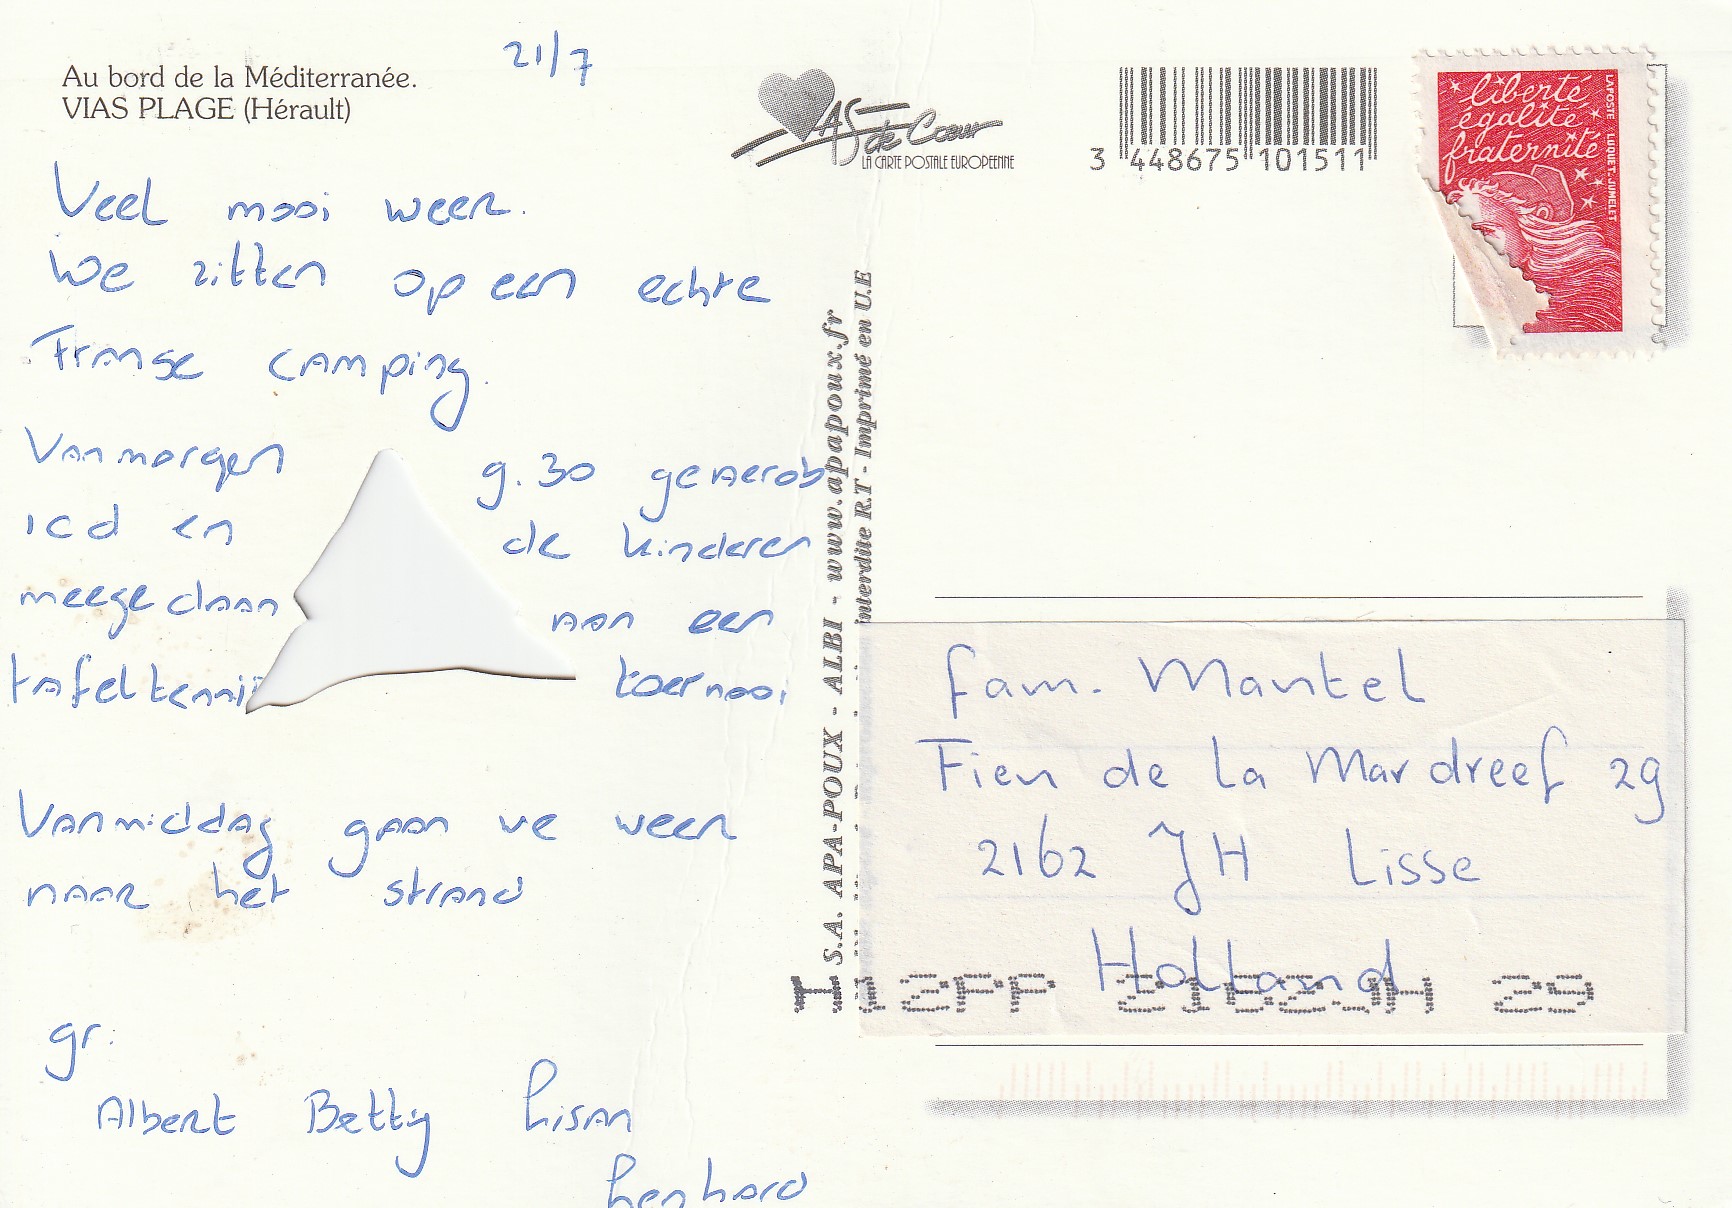 Au bord de la Méditerranée.
VIAS PLAGE (Hérault)
21/7
Veel mooi weer.
We zitten op een echte
Franse camping.
Vanmorgen 9.30 geaerob
icd en de kinderen
meegedaan aan een
tafeltennis toernooi
Vanmiddag gaan we weer
naar het strand
gr:
Albert Betty Lisan
Lenhard
AS de Cœur
LA CARTE POSTALE EUROPEENNE
3 448675 101511
liberté
égalité
fraternité
LA POSTE LUQUET-JUMELET
S.A. APA-POUX - ALBI - www.apapoux.fr
interdite R.T - Imprimé en U.E
fam. Mantel
Fien de la Mardreef 29
2162 JH Lisse
Holland
2162JH 29